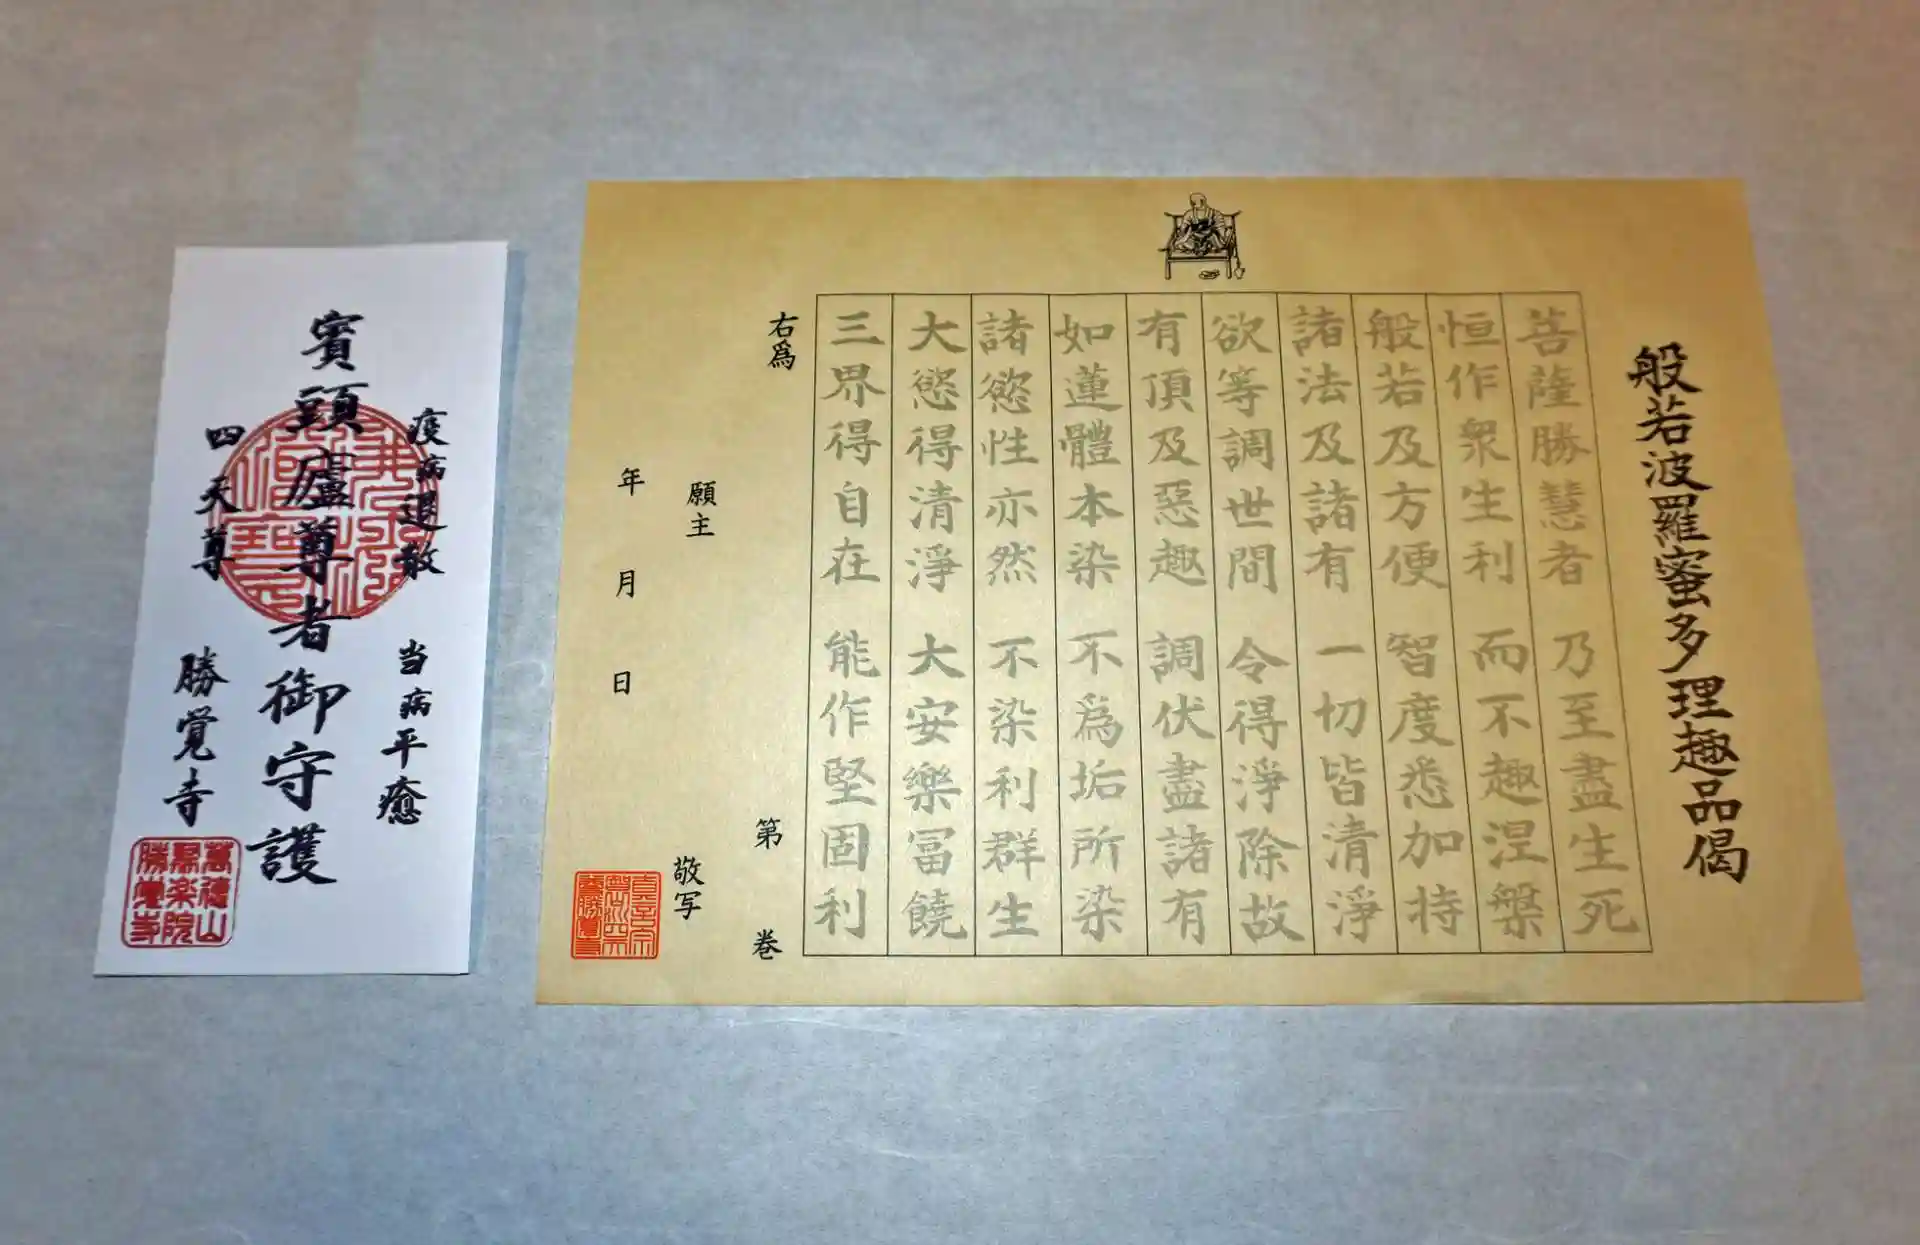 般若波羅蜜多理趣品偈
菩薩勝慧者 乃至盡生死
恒作衆生利 而不趣涅槃
般若及方便 智度悉加持
諸法及諸有 一切皆清淨
欲等調世間 令得淨除故
有頂及惡趣 調伏盡諸有
如蓮體本染 不爲垢所染
諸慾性亦然 不染利群生
大慾得清淨 大安樂冨饒
三界得自在 能作堅固利
右爲 第 巻
願主 敬写
年 月 日
疫病退散 当病平癒
賓頭盧尊者御守護
四天尊 勝覚寺
萬徳山
聚楽院
勝覚寺